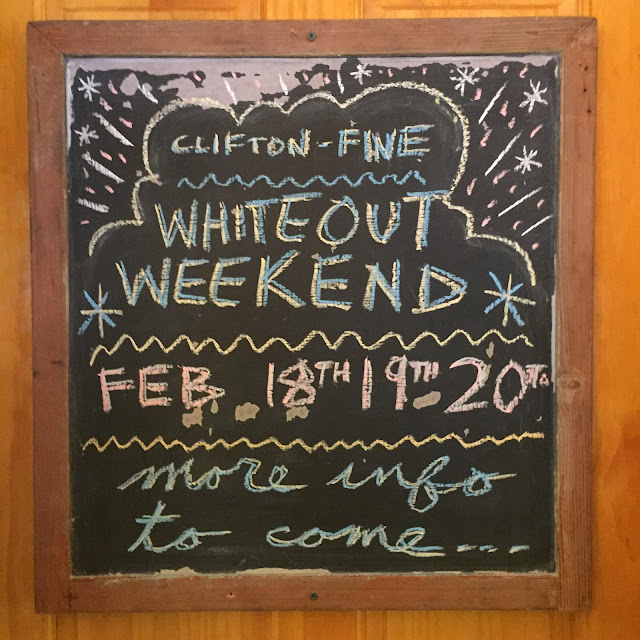 CLIFTON-FINE
WHITEOUT
WEEKEND
FEB. 18TH 19TH 20TH
more info
to come....